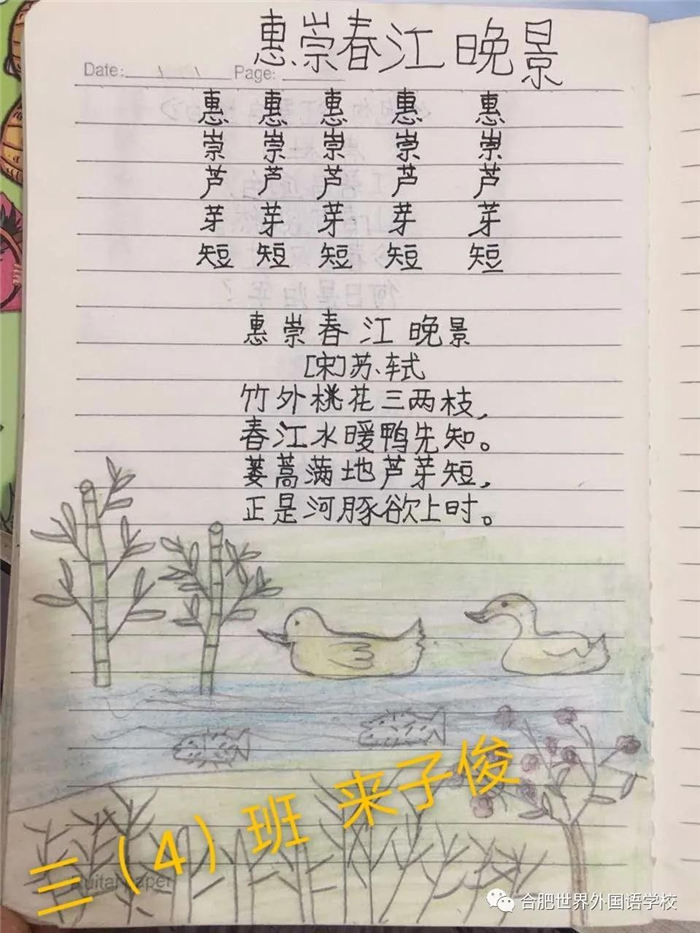 惠崇春江晚景
Date: / / Page:
惠 惠 惠 惠 惠
崇 崇 崇 崇 崇
芦 芦 芦 芦 芦
芽 芽 芽 芽 芽
短 短 短 短 短
惠崇春江晚景
[宋]苏轼
竹外桃花三两枝,
春江水暖鸭先知。
蒌蒿满地芦芽短,
正是河豚欲上时。
三(4)班 来子俊
合肥世界外国语学校